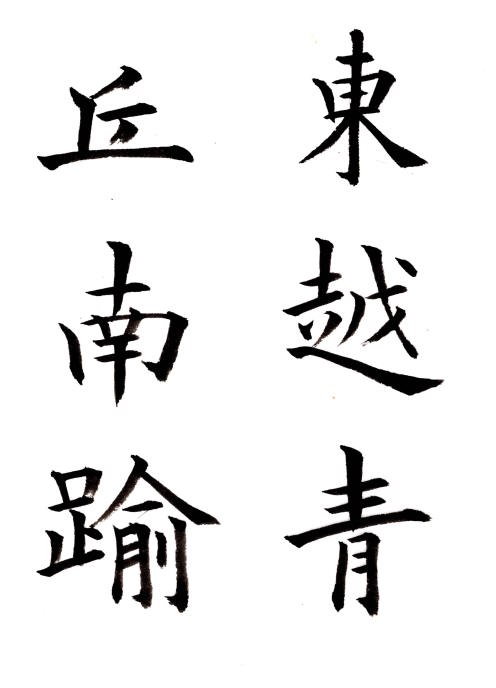 東越青
丘南踰